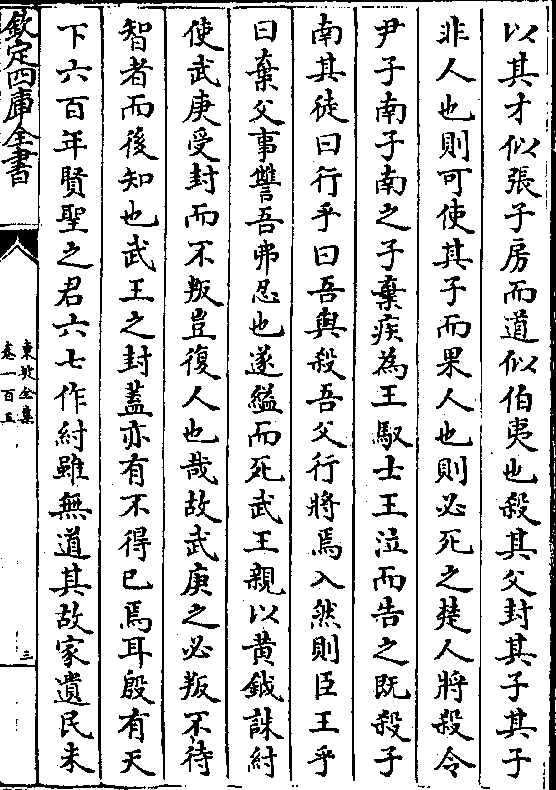 以其才似張子房而道似伯夷也殺其父封其子其子
非人也則可使其子而果人也則必死之楚人將殺令
尹子南子南之子棄疾為王馭士王泣而告之既殺子
南其徒曰行乎曰吾與殺吾父行將焉入然則臣王乎
曰棄父事讐吾弗忍也遂縊而死武王親以黄鉞誅紂
使武庚受封而不叛豈復人也哉故武庚之必叛不待
智者而後知也武王之封蓋亦有不得已焉耳殷有天
下六百年賢聖之君六七作紂雖無道其故家遺民未
欽定四庫全書
東坡全集
卷一百五
三